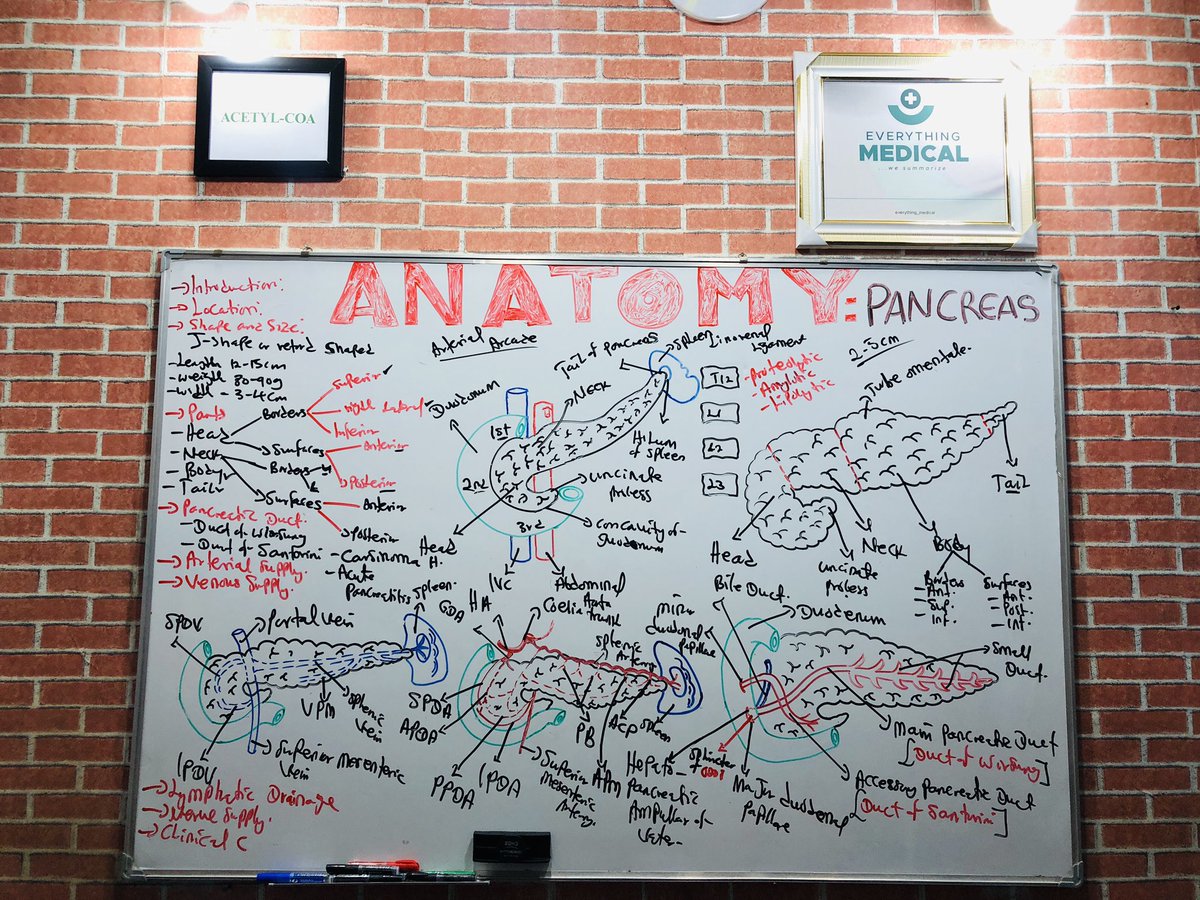 ACETYL-COA
EVERYTHING
MEDICAL
...we summarize
everything_medical
ANATOMY: PANCREAS
→Introduction:
→Location:
→Shape and Size:
J-shape or retord shaped
-Length 12-15cm
-weight 80-90g
-width - 3-4cm
→Parts
-Head
-Neck
-Body
-Tail
Borders
Superior
right lateral
Inferior
Surfaces
Anterior
Posterior
Borders
Surfaces
Anterior
Posterior
→Pancreatic Duct.
-Duct of Wirsung
-Duct of Santorini
→Arterial Supply.
→Venous Supply.
-Carcinoma H.
-Acute
Pancreatitis
Arterial Arcade
Duodenum
1st
2nd
3rd
Tail of pancreas
Neck
Spleen
Linorenal
ligament
Hilum
of
Spleen
uncinate
process
concavity of
duodenum
Head
IVC
Abdominal
Aorta
T12
L1
L2
L3
-Proteolytic
-Amylytic
-Lipolytic
2-3cm
Tube omentale.
Tail
Head
uncinate
process
Neck
Body
Borders
-Ant.
-Sup.
-Inf.
Surfaces
-Ant.
-Post.
-Inf.
SPDV
Portal vein
Spleen
VPM
Splenic
Vein
IPDV
Superior Mesenteric
Vein
GDA
HA
Coeliac
trunk
Splenic
Artery
SPDA
APDA
PPDA
IPDA
Superior
Mesenteric
Artery.
PB
ACP
Spleen
Minor
duodenal
papillae
Bile Duct.
Duodenum
Small
Duct.
Main Pancreatic Duct
[Duct of Wirsung]
Accessory Pancreatic Duct
[Duct of Santorini]
Hepato-
Pancreatic
Ampullar of
Vater-
Sphincter
of ODDI
Major duodenal
papillae
→Lymphatic Drainage
→Nerve Supply.
→Clinical C